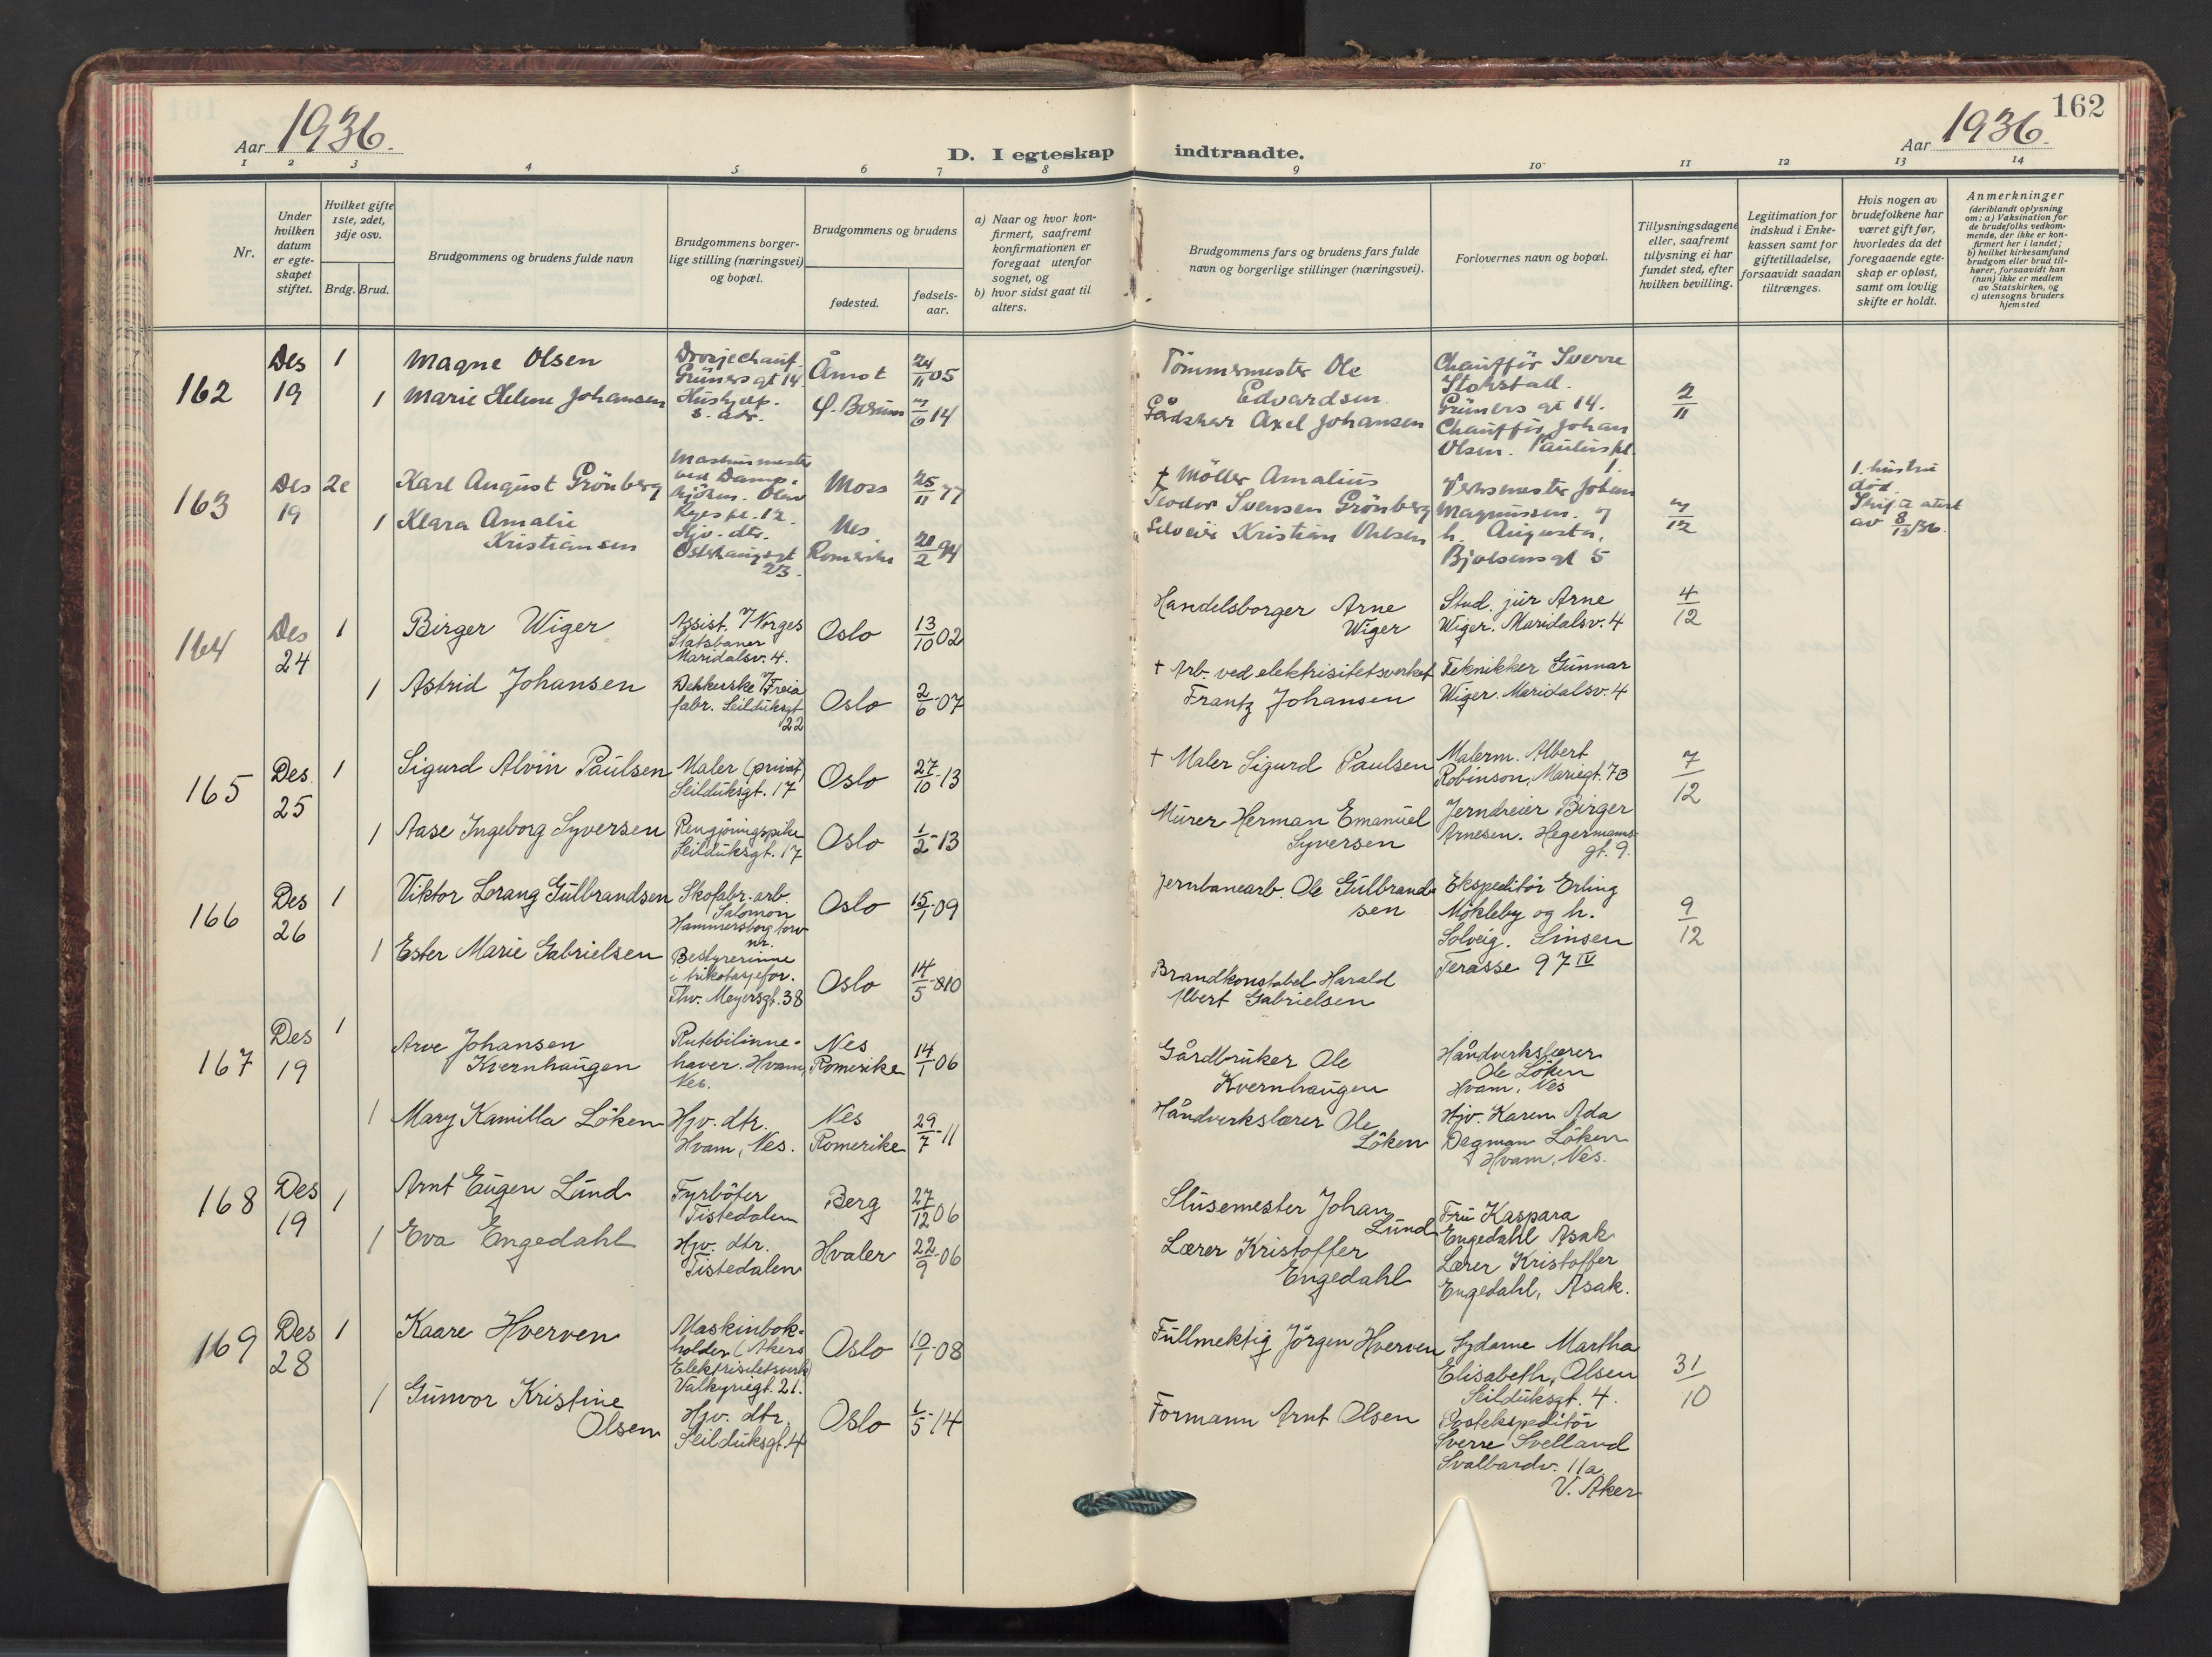 162
Aar 1936.
D. I egteskap indtraadte.
Aar 1936
1 2 3 4 5 6 7 8 9 10 11 12 13 14
Nr.
Under hvilken datum er egteskapet stiftet.
Hvilket gifte 1ste, 2det, 3dje osv.
Brdg. Brud.
Brudgommens og brudens fulde navn
Brudgommens borgerlige stilling (næringsvei) og bopæl.
Brudgommens og brudens
fødested.
fødselsaar.
a) Naar og hvor konfirmert, saafremt konfirmationen er foregaat utenfor sognet, og
b) hvor sidst gaat til alters.
Brudgommens fars og brudens fars fulde navn og borgerlige stillinger (næringsvei).
Forlovernes navn og bopæl.
Tillysningsdagene eller, saafremt tillysning ei har fundet sted, efter hvilken bevilling.
Legitimation for indskud i Enkekassen samt for giftetilladelse, forsaavidt saadan tiltrænges.
Hvis nogen av brudefolkene har været gift før, hvorledes da det foregaaende egteskap er opløst, samt om lovlig skifte er holdt.
Anmerkninger (deriblandt oplysning om: a) Vaksination for de brudefolks vedkommende, der ikke er konfirmert her i landet; b) hvilket kirkesamfund brudgom eller brud tilhører, forsaavidt han (hun) ikke er medlem av Statskirken, og c) utensogns bruders hjemsted
162 Des 19 1 Magne Olsen
Drosjechauf. Grüners gt 14
Åmot 24/11 05
Tömmermester Ole Edvardsen
Chaufför Sverre Stokstad. Grüners gt 14.
2/11
1 Marie Helene Johansen
Hushjelp. s. adr.
Ø. Bærum 7/6 14
Axel Johansen
Chaufför Johan Olsen. Pauluspl. 1.
163 Des 19 2e Karl August Grönberg
Moss 25/11 77
† Möller Amalius Teodor Svensen Grönberg
Verksmester Johan Magnussen og h. Augusta, Bjolsensgt 5
7/12
1. hustru död.
av 8/12 36.
1 Klara Amalie Kristiansen
Hjv. dtr.
23.
Nes Romerike 20/2 94
Kristian Ohlsen
164 Des 24 1 Birger Wiger
Assist. v/ Norges Statsbaner Maridalsv. 4.
Oslo 13/10 02
Handelsborger Arne Wiger
Stud. jur Arne Wiger. Maridalsv. 4
4/12
1 Astrid Johansen
Dekkerske v/ Freia fabr. Seilduksgt 22
Oslo 2/6 07
† Arb. ved elektrisitetsverket Frantz Johansen
Teknikker Gunnar Wiger. Maridalsv. 4
165 Des. 25 1 Sigurd Alvin Paulsen
Maler (privat) Seilduksgt. 17
Oslo 27/10 - 13
† Maler Sigurd Paulsen
Malerm. Albert Robinson, Mariegt. 7B
7/12
1 Aase Ingeborg Syversen
Rengjöringspike Seilduksgt. 17
Oslo 1/2 - 13
Murer Herman Emanuel Syversen
Jerndreier Birger Arnesen. Hegermannsgt. 9.
166 Des 26 1 Viktor Lorang Gulbrandsen
Skofabr. arb. Salomon Hammersborg torv nr.
Oslo 15/1 - 09
Jernbanearb. Ole Gulbrandsen
Ekspeditör Erling Mökleby og h. Solveig. Sinsen Terasse 97 IV
9/12
1 Ester Marie Gabrielsen
Bestyrerinne i trikotasjefor. Thv. Meyersgt. 38
Oslo 14/5 - 10
Brandkonstabel Harald Albert Gabrielsen
167 Des 19 1 Arve Johansen Kvernhaugen
Rutebilinnehaver. Hvam, Nes.
Nes Romerike 14/1 06
Gårdbruker Ole Kvernhaugen
Håndverkslærer Ole Löken Hvam, Nes
1 Mary Kamilla Löken
Hjv. dtr. Hvam, Nes.
Nes Romerike 29/7 - 11
Håndverkslærer Ole Löken
Hjv. Karen Ada Dagman Löken Hvam, Nes.
168 Des 19 1 Arnt Eugen Lund
Fyrböter Tistedalen
Berg 27/12 06
Slusemester Johan Lund
Fru Kaspara Engedahl Asak
1 Eva Engedahl
Hjv. dtr. Tistedalen
Hvaler 22/9 - 06
Lærer Kristoffer Engedahl
Lærer Kristoffer Engedahl, Asak.
169 Des 28 1 Kaare Hverven
Maskinbokholder (Akers Elektrisitetsverk) Valkyriegt. 21.
Oslo 10/1 - 08
Fullmektig Jörgen Hverven
Sydame Martha Elisabeth Olsen Seilduksgt. 4.
31/10
1 Gunvor Kristine Olsen
Hjv. dtr. Seilduksgt. 4
Oslo 1/5 - 14
Formann Arnt Olsen
Postekspeditör Sverre Svelland Svalbardv. 11a V. Aker